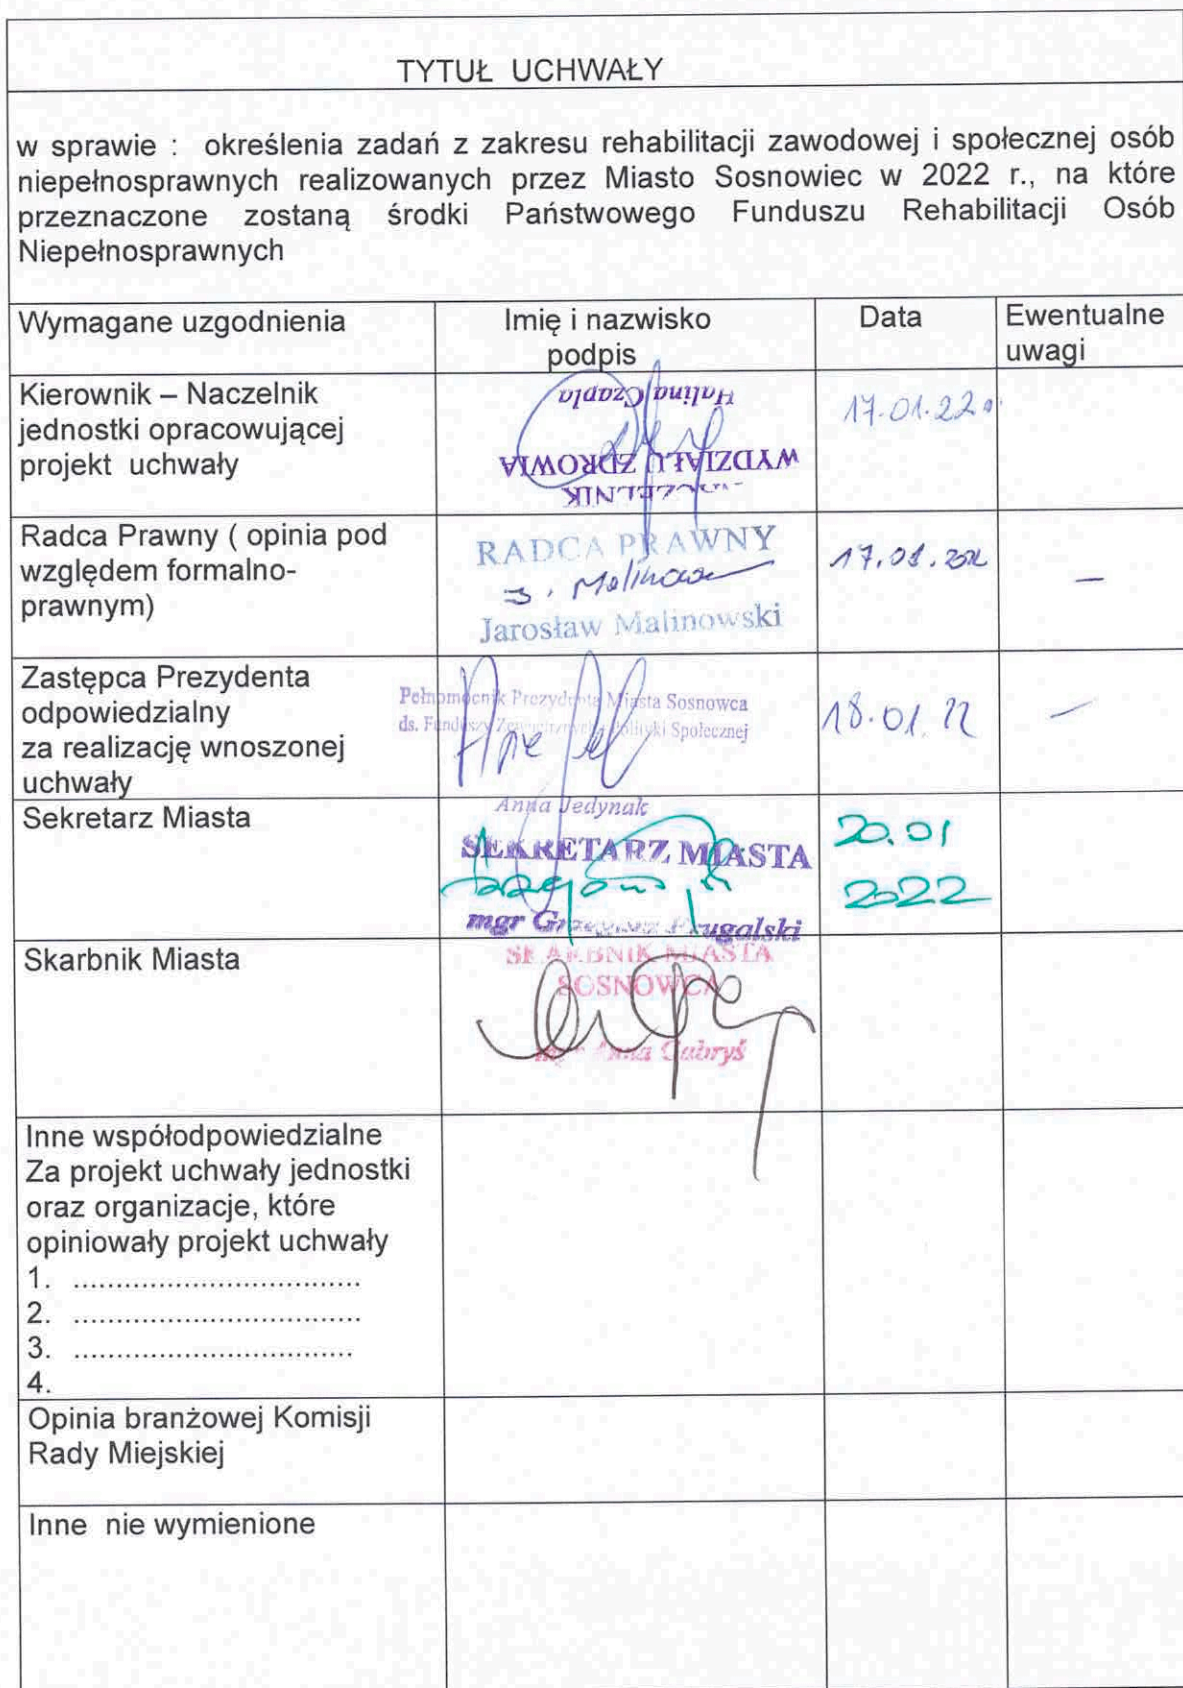 TYTUŁ UCHWAŁY
w sprawie : określenia zadań z zakresu rehabilitacji zawodowej i społecznej osób
niepełnosprawnych realizowanych przez Miasto Sosnowiec w 2022 r., na które
przeznaczone zostaną środki Państwowego Funduszu Rehabilitacji Osób
Niepełnosprawnych
Wymagane uzgodnienia
Imię i nazwisko
podpis
Data
Ewentualne
uwagi
Kierownik – Naczelnik
jednostki opracowującej
projekt uchwały
NACZELNIK
WYDZIAŁU ZDROWIA
Halina Czapla
17.01.22
Radca Prawny ( opinia pod
względem formalno-
prawnym)
RADCA PRAWNY
Jarosław Malinowski
17.01.2022
–
Zastępca Prezydenta
odpowiedzialny
za realizację wnoszonej
uchwały
Pełnomocnik Prezydenta Miasta Sosnowca
ds. Funduszy Zewnętrznych i Polityki Społecznej
Anna Jedynak
18.01.22
–
Sekretarz Miasta
SEKRETARZ MIASTA
mgr
20.01
2022
Skarbnik Miasta
SKARBNIK MIASTA
SOSNOWCA
mgr Anna Gabryś
Inne współodpowiedzialne
Za projekt uchwały jednostki
oraz organizacje, które
opiniowały projekt uchwały
1. ..................................
2. ..................................
3. .................................
4.
Opinia branżowej Komisji
Rady Miejskiej
Inne nie wymienione